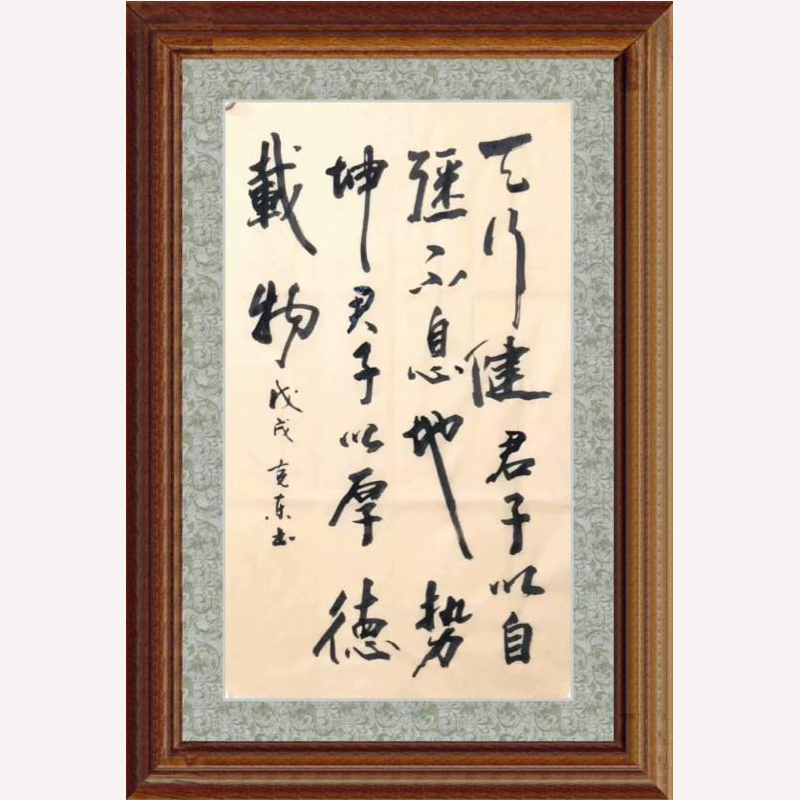 天行健君子以自
强不息地势
坤君子以厚德
載物
戊戌亮东书